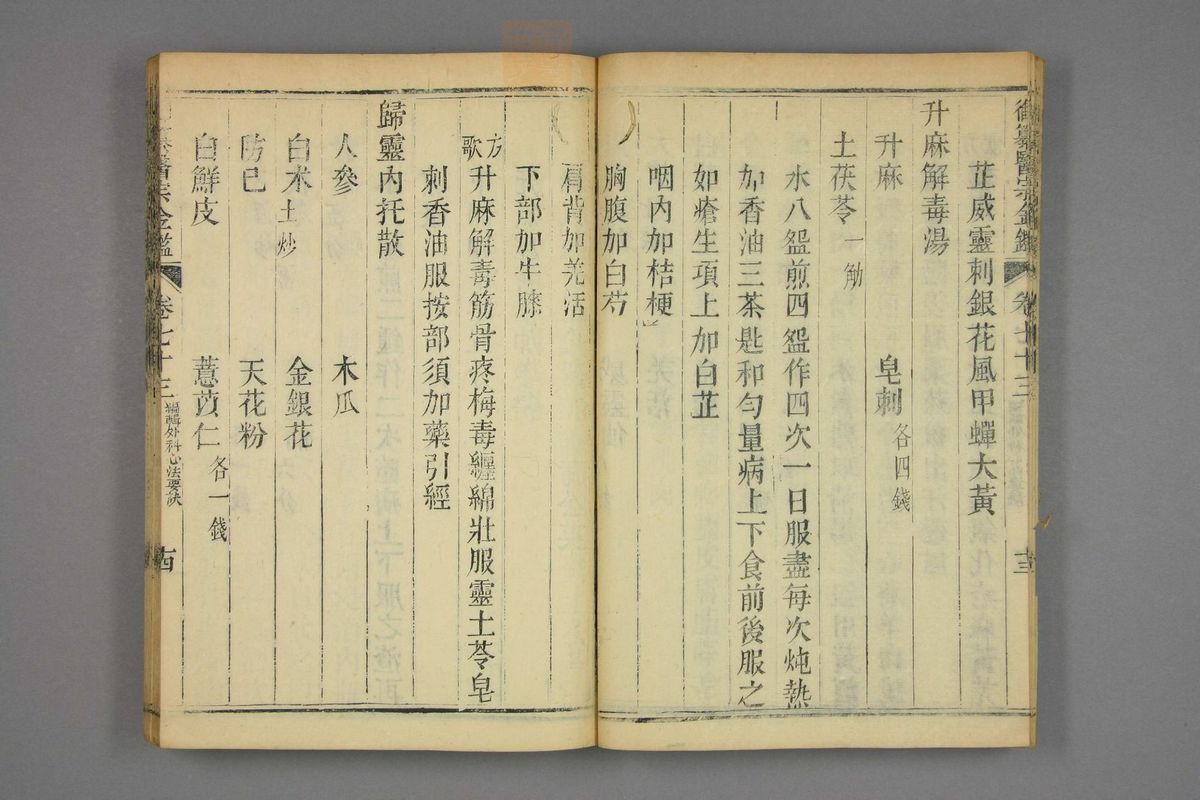 御纂醫宗金鑑 卷七十三 十三
芷威靈刺銀花風甲蟬大黃
升麻解毒湯
升麻 皂刺各四錢
土茯苓一觔
水八盌煎四盌作四次一日服盡每次炖熱
加香油三茶匙和勻量病上下食前後服之
如瘡生項上加白芷
咽内加桔梗
胸腹加白芍
肩背加羌活
下部加牛膝
方歌 升麻解毒筋骨疼梅毒纏綿壯服靈土苓皂
刺香油服按部須加藥引經
歸靈内托散
人參 木瓜
白术土炒 金銀花
防己 天花粉
白鮮皮 薏苡仁各一錢
醫宗金鑑 卷七十三 編輯外科心法要訣 十四